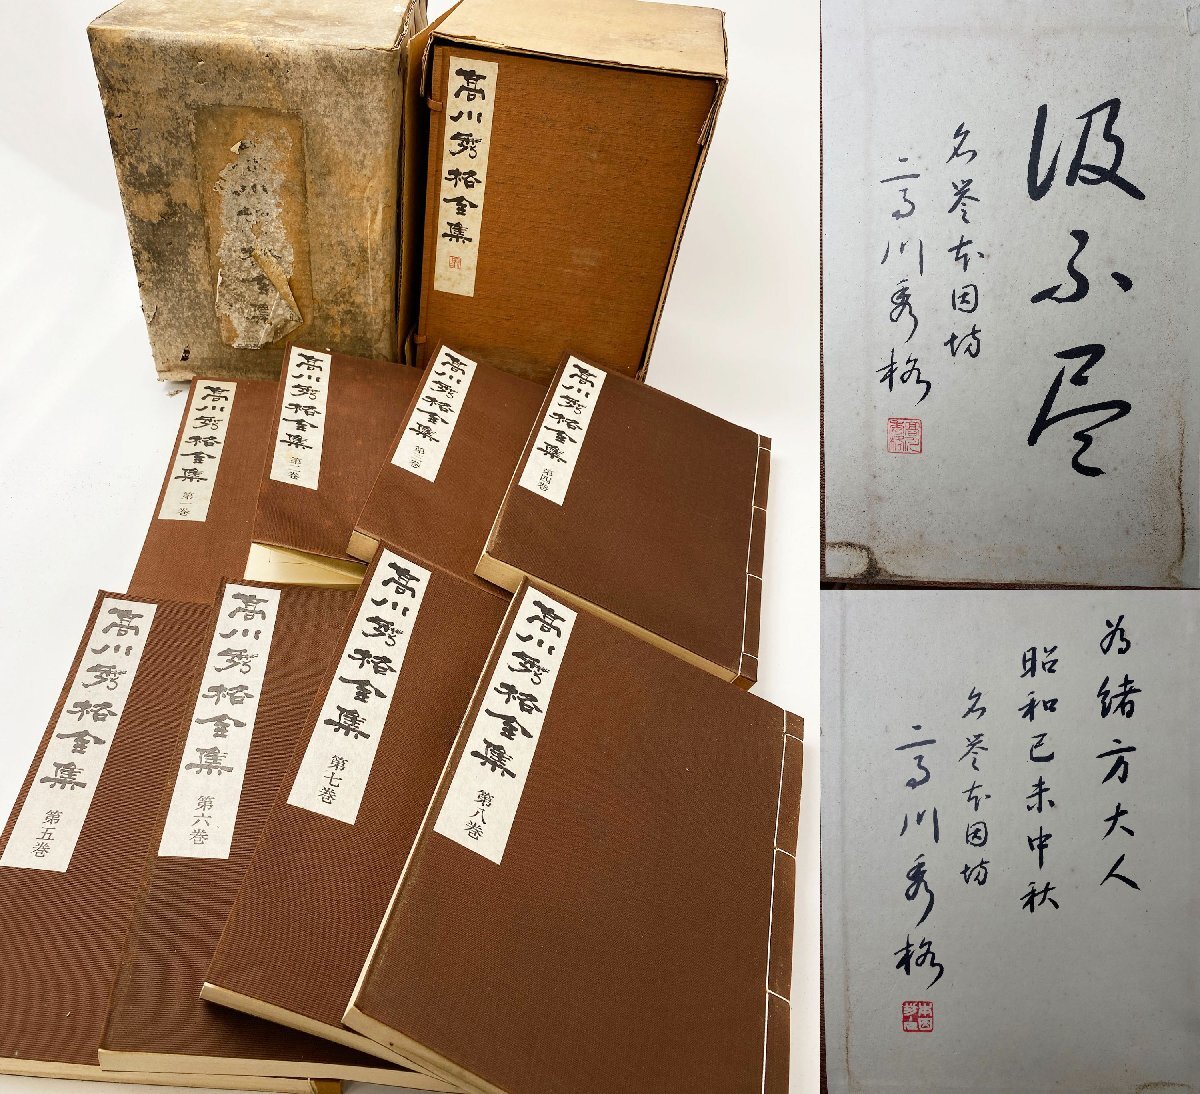 高川秀格全集
高川秀格全集
第一巻
高川秀格全集
第二巻
高川秀格全集
高川秀格全集
第四巻
高川秀格全集
第五巻
高川秀格全集
第六巻
高川秀格全集
第七巻
高川秀格全集
第八巻
汲不尽
名誉本因坊
高川秀格
為緒方大人
昭和己未中秋
名誉本因坊
高川秀格